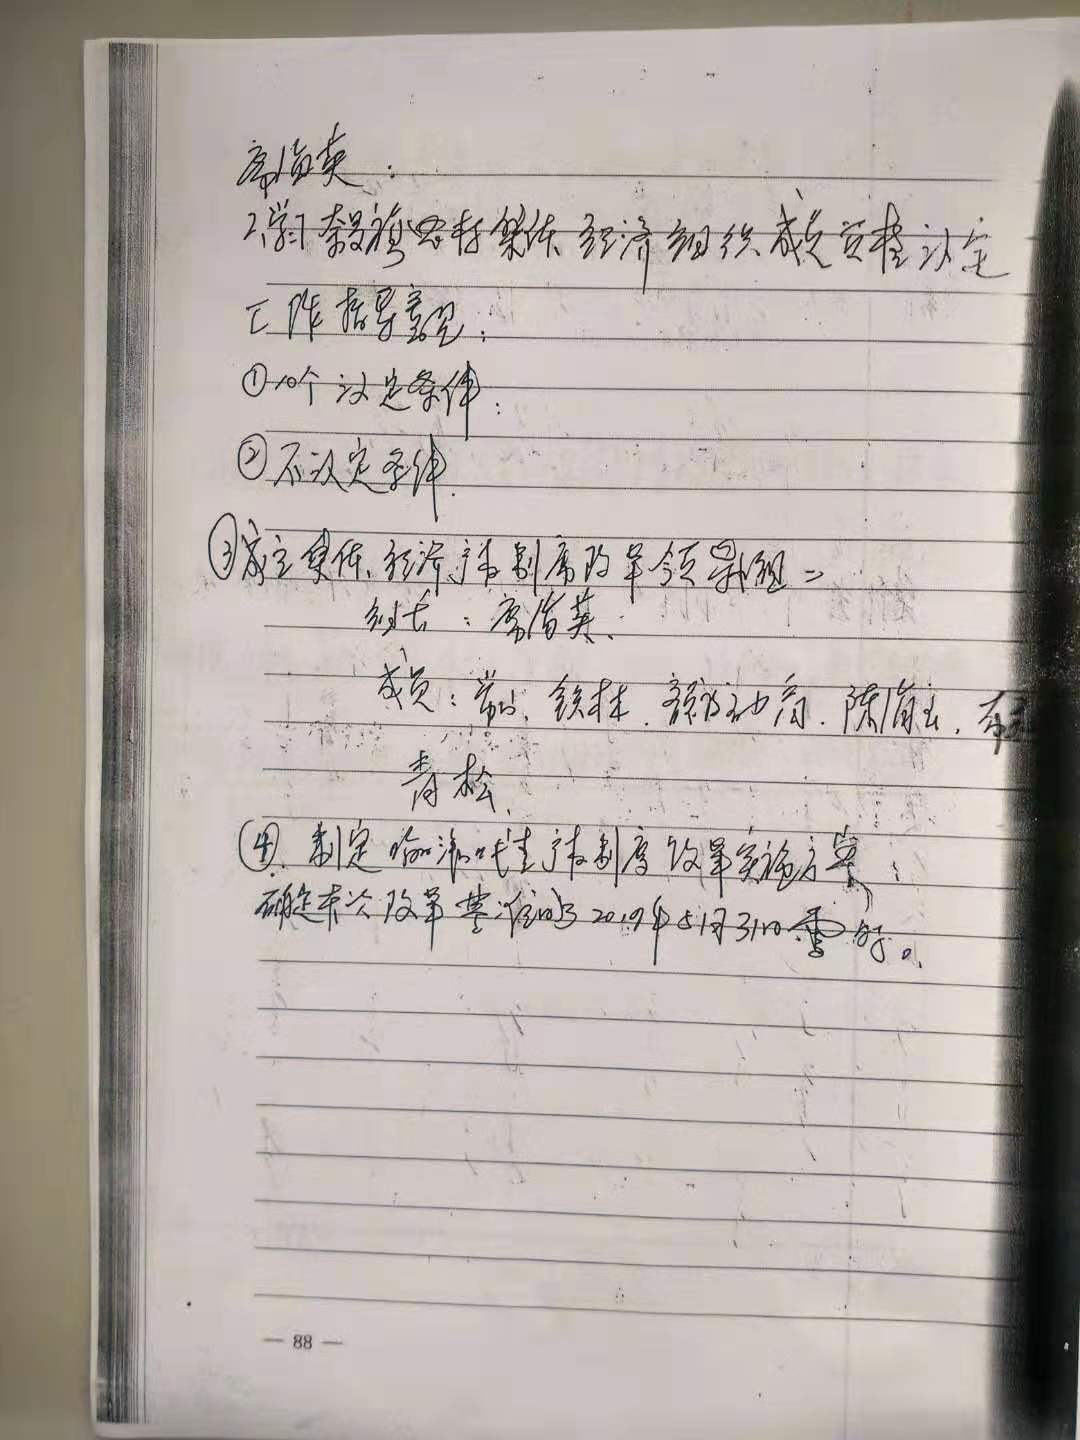 席海英：
1、学习奈曼旗农村集体经济组织成员资格认定
工作指导意见：
①10个认定条件：
②不认定条件.
③成立集体经济产权制度改革领导小组：
组长：席海英、
成员：铁林、陈海玉、
青松、
④、制定产权制度改革实施方案，
确定本次改革基准日为2019年5月31日零时。
— 88 —